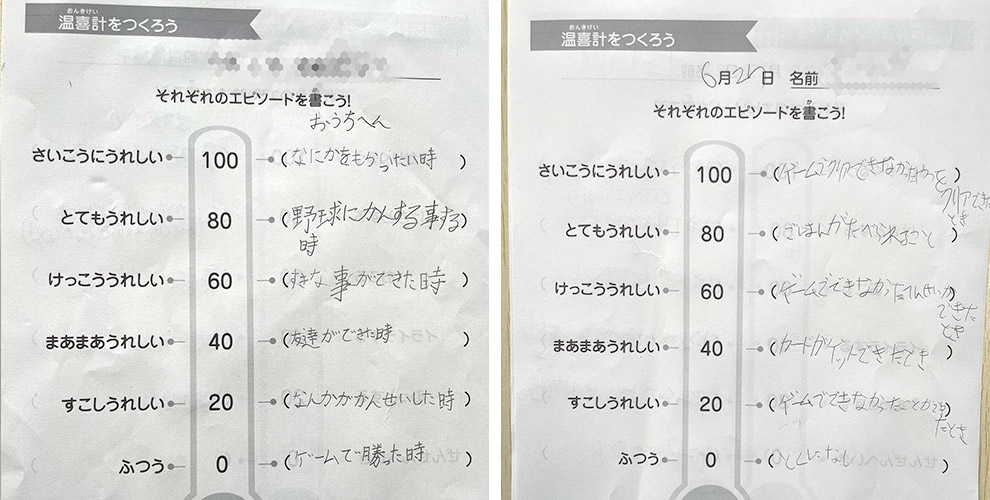 おんきけい
温喜計をつくろう
それぞれのエピソードを書こう!
おうちへん
さいこうにうれしい 100 (なにかをもらったい時)
とてもうれしい 80 (野球にかんする事する
時
けっこううれしい 60 (すきな事ができた時)
まあまあうれしい 40 (友達ができた時)
すこしうれしい 20 (なんかかかんせいした時)
ふつう 0 (ゲームで勝った時)
おんきけい
温喜計をつくろう
6月 日 名前
それぞれのエピソードを書こう!
さいこうにうれしい 100 (ゲームでクリアできなかった
クリアできた
とき
とてもうれしい 80 (ごはんがたべられること)
けっこううれしい 60 (ゲームでできなかった
できた
とき
まあまあうれしい 40 (カードがゲットできたとき)
すこしうれしい 20 (ゲームでできなかったことができ)
たとき
ふつう 0 (とくになし)